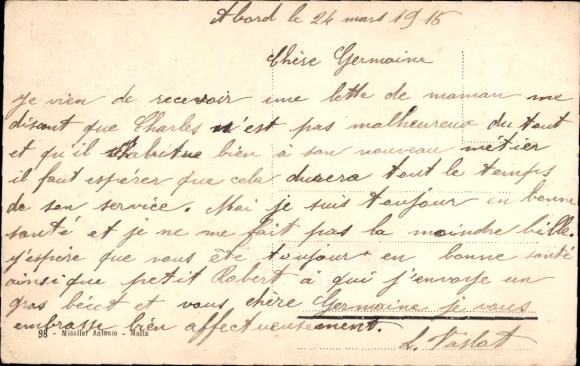 Abord le 24 mars 1915
Chère Germaine
Je vien de recevoir une lette de maman me
disant que Charles n'est pas malheureux du tout
et qu'il s'abitue bien à son nouveau métier
il faut espérer que cela durera tout le temps
de son service. Moi je suis toujour en bonne
santé et je ne me fait pas la moindre bille.
j'espère que vous ête toujour en bonne santé
ainsique petit Robert à qui j'envoye un
gros bécot et vous chère Germaine je vous
embrasse bien affectueusement.
98 - Micallef Antonio - Malta
L.